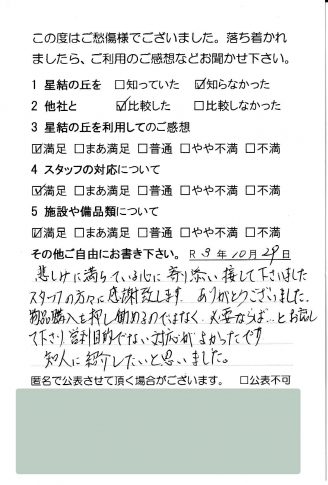 この度はご愁傷様でございました。落ち着かれ
ましたら、ご利用のご感想などお聞かせ下さい。
1 星結の丘を □知っていた ☑知らなかった
2 他社と ☑比較した □比較しなかった
3 星結の丘を利用してのご感想
☑満足 □まあ満足 □普通 □やや不満 □不満
4 スタッフの対応について
☑満足 □まあ満足 □普通 □やや不満 □不満
5 施設や備品類について
☑満足 □まあ満足 □普通 □やや不満 □不満
その他ご自由にお書き下さい。 R 3 年 10 月 29 日
悲しみに満ちている心に寄り添い接して下さいました
スタッフの方々に感謝致します ありがとうございました。
物品購入を押し勧めるのではなく、必要ならば…とお話し
て下さり営利目的でない対応がよかったです
知人に紹介したいと思いました。
匿名で公表させて頂く場合がございます。 □公表不可